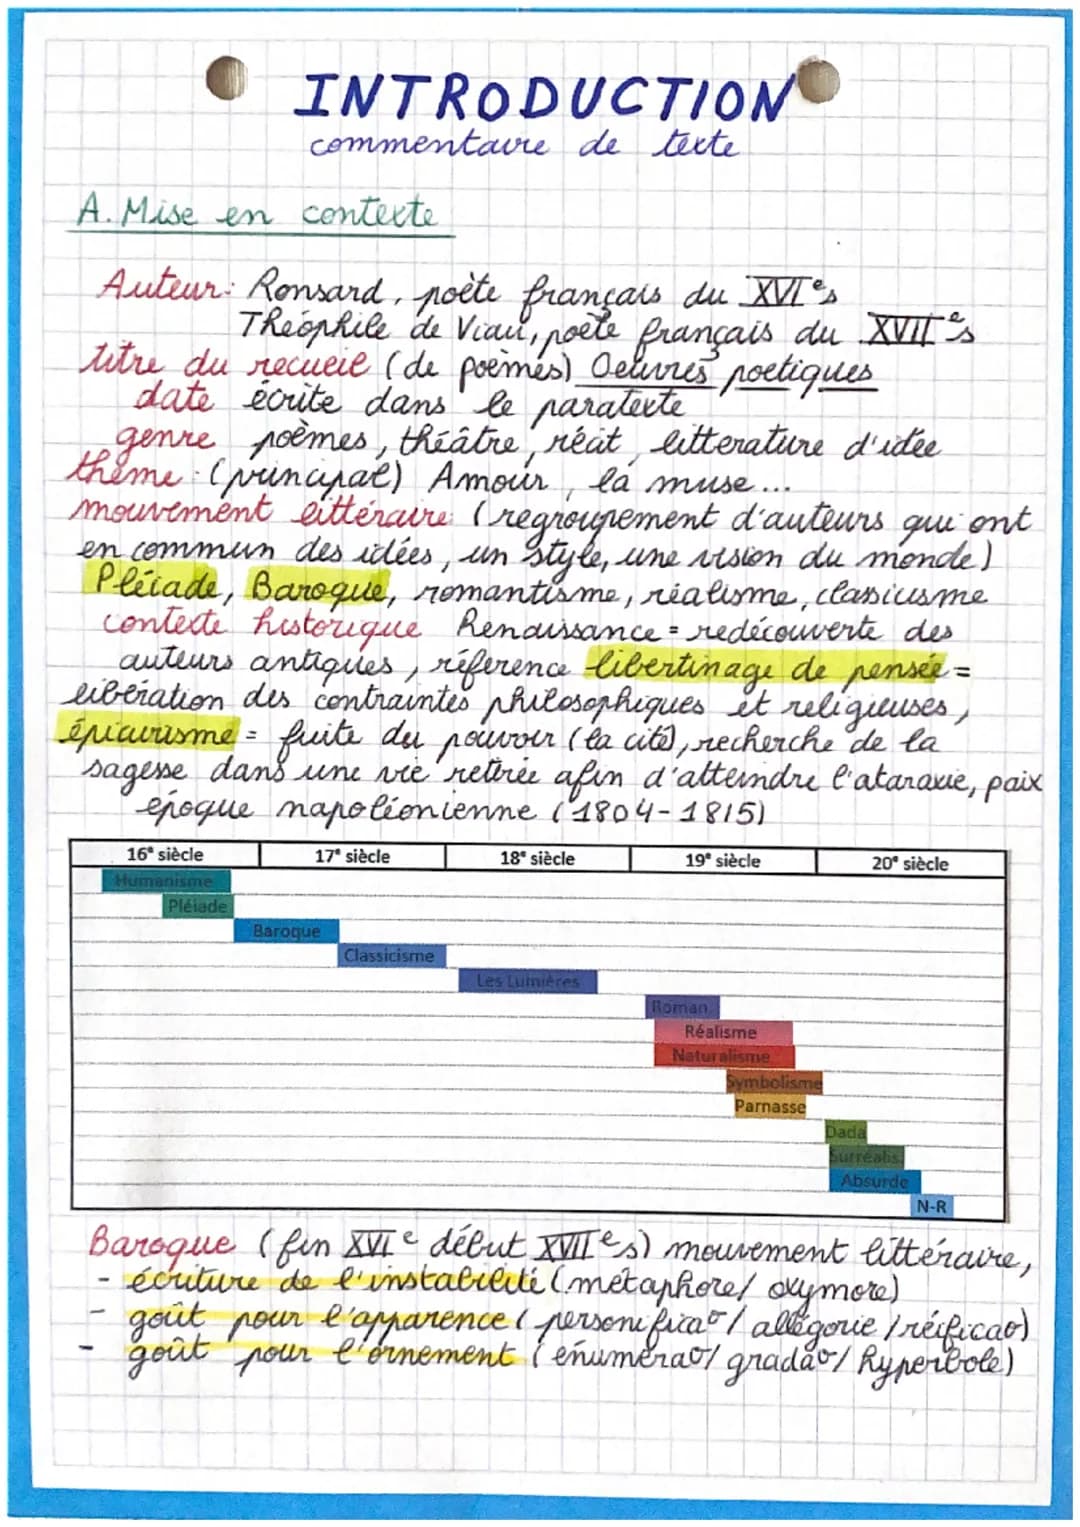 INTRODUCTION
commentaire de texte
A. Mise en contexte
Auteur: Ronsard, poète français du XVIe s
Théophile de Viau, poète français du XVIIe s
titre du recueil (de poèmes) Oeuvres poetiques
date écrite dans le paratexte
genre poèmes, théâtre, récit, litterature d'idée
thème : (principal) Amour, la muse...
mouvement littéraire: (regroupement d'auteurs qui ont
en commun des idées, un style, une vision du monde)
Pléiade, Baroque, romantisme, réalisme, classicisme
contexte historique Renaissance = redécouverte des
auteurs antiques, réference libertinage de pensée =
libération des contraintes philosophiques et religieuses,
épicurisme = fuite du pouvoir (la cité), recherche de la
sagesse dans une vie retirée afin d'atteindre l'ataraxie, paix
epoque napoléonienne (1804-1815)
16e siècle 17e siècle 18e siècle 19e siècle 20e siècle
Humanisme
Pléiade
Baroque
Classicisme
Les Lumières
Roman
Réalisme
Naturalisme
Symbolisme
Parnasse
Dada
Surréalis.
Absurde
N-R
Baroque (fin XVIe début XVIIe s) mouvement littéraire,
- écriture de l'instabilité (métaphore/ oxymore)
- goût pour l'apparence ( personificao / allégorie / réificao)
- goût pour l'ornement ( énumérao/ gradao/ hyperbole)